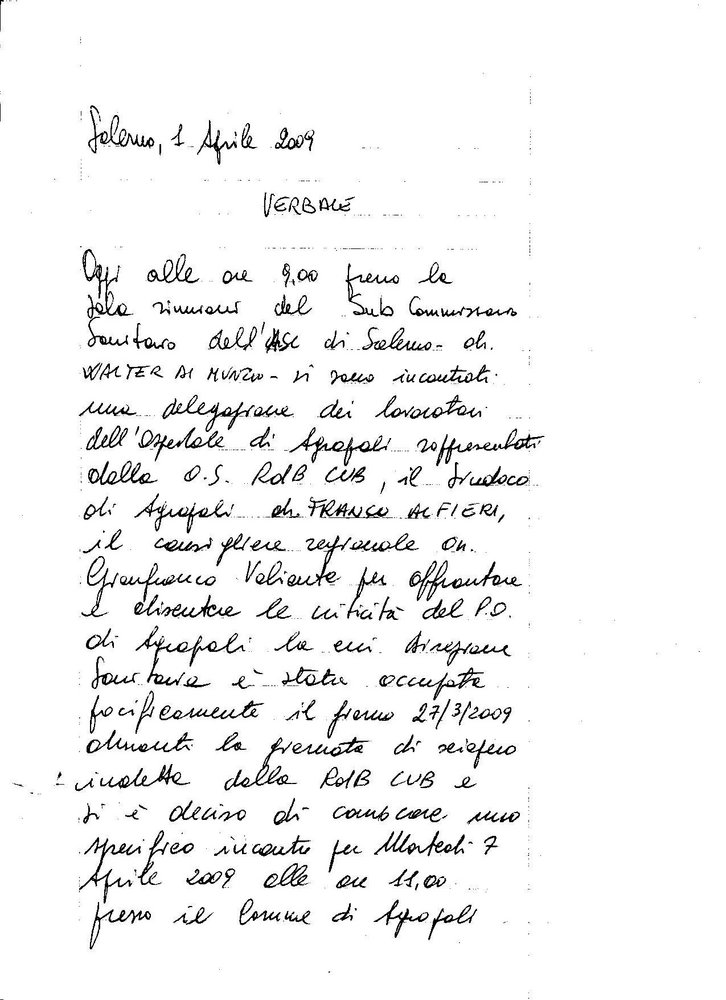 Salerno, 1 Aprile 2009
VERBALE
Oggi alle ore 9,00 presso la
sala riunioni del Sub Commissario
Sanitario dell'ASL di Salerno - dr.
WALTER DI MUNZIO - si sono incontrati
una delegazione dei lavoratori
dell'Ospedale di Agropoli rappresentati
dalla O.S. RdB CUB, il Sindaco
di Agropoli dr. FRANCO ALFIERI,
il consigliere regionale On.
Gianfranco Valiante per affrontare
e discutere le criticità del P.O.
di Agropoli la cui Direzione
Sanitaria è stata occupata
pacificamente il giorno 27/3/2009
durante la giornata di sciopero
indetta dalla RdB CUB e
si è deciso di convocare uno
specifico incontro per Martedì 7
Aprile 2009 alle ore 11,00
presso il Comune di Agropoli